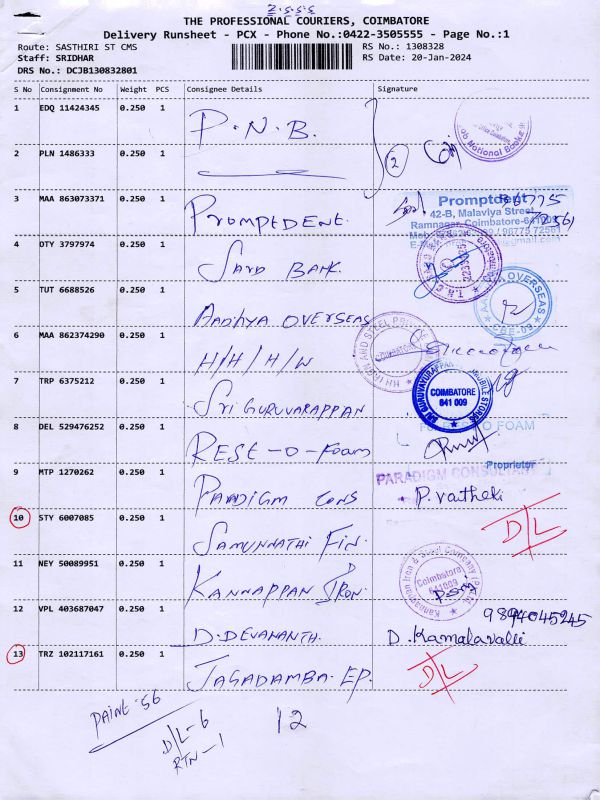 2.5.5.5
THE PROFESSIONAL COURIERS, COIMBATORE
Delivery Runsheet - PCX - Phone No.:0422-3505555 - Page No.:1
Route: SASTHIRI ST CMS
RS No.: 1308328
Staff: SRIDHAR
RS Date: 20-Jan-2024
DRS No.: DCJB130832801
S No Consignment No Weight PCS Consignee Details Signature
1 EDQ 11424345 0.250 1 P.N.B.
2 PLN 1486333 0.250 1
2
National
3 MAA 863073371 0.250 1 PROMPTDENT.
Promptdent
42-B, Malaviya Street
Ramnagar, Coimbatore-641009
@gmail.com
4 DTY 3797974 0.250 1 BANK.
5 TUT 6688526 0.250 1 AADHYA OVERSEAS
OVERSEAS
CBE-09
6 MAA 862374290 0.250 1 H/H/H/W
HH IRON AND STEEL
COIMBATORE
7 TRP 6375212 0.250 1 SRI GURUVARAPPAN
SRI GURUVAYURAPPAN MOBILE STORES
COIMBATORE
641 009
8 DEL 529476252 0.250 1 REST-O-FOAM
O FOAM
Proprietor
9 MTP 1270262 0.250 1 PARADIGM CONS
PARADIGM CONSULTANT
P. Vatheki
10 STY 6007085 0.250 1 SAMUNNATHI FIN.
D/L
11 NEY 50089951 0.250 1 KANNAPPAN IRON.
Kannappan Iron & Steel Company
Coimbatore
641009
12 VPL 403687047 0.250 1 D.DEVANANTH.
9894045245
D. Kamalavalli
13 TRZ 102117161 0.250 1 JAGADAMBA. EP.
D/L
56
D/L-6
RTN-1
12